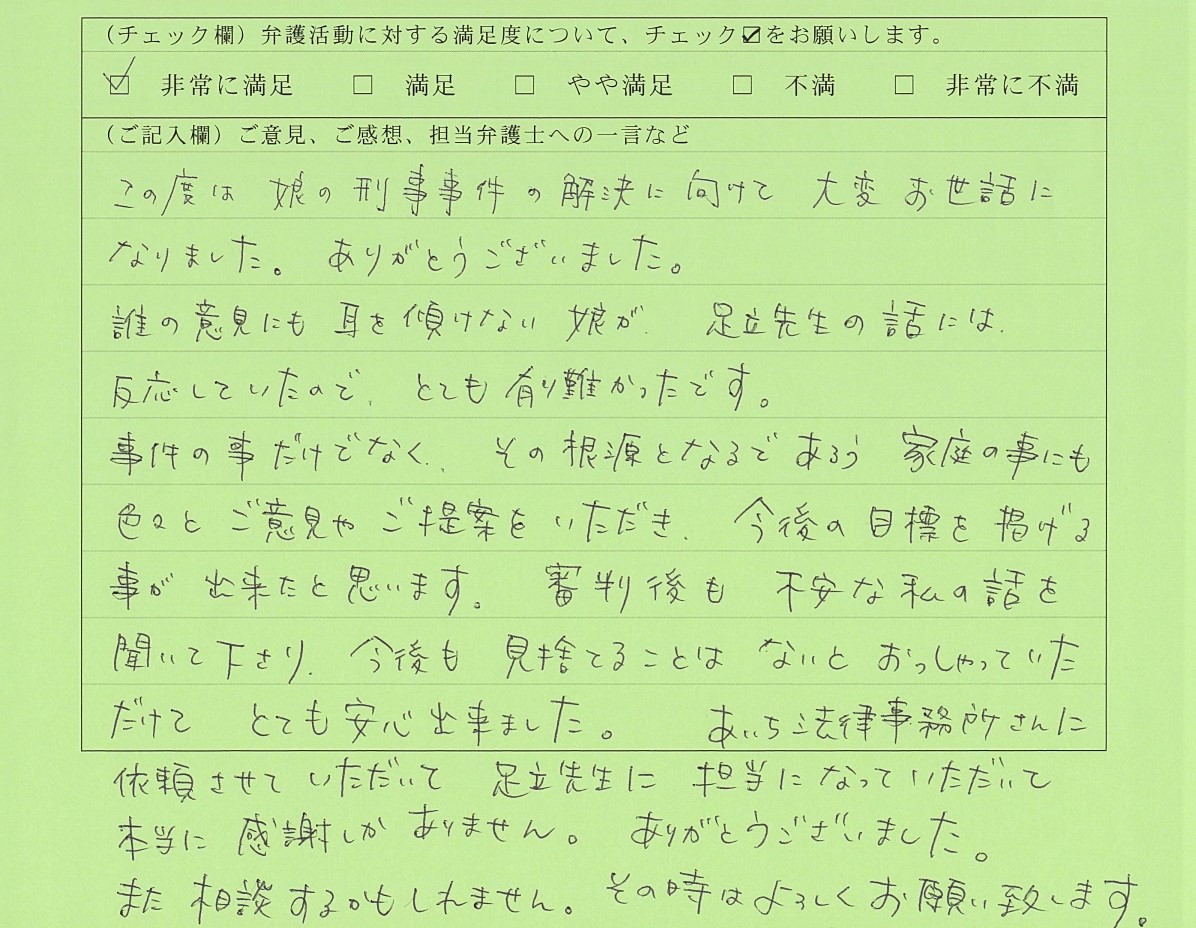 (チェック欄) 弁護活動に対する満足度について、チェック☑をお願いします。
☑ 非常に満足 □ 満足 □ やや満足 □ 不満 □ 非常に不満
(ご記入欄) ご意見、ご感想、担当弁護士への一言など
この度は 娘の刑事事件の解決に向けて 大変お世話に
なりました。 ありがとうございました。
誰の意見にも 耳を傾けない 娘が、 足立先生の話には、
反応していたので、とても有り難かったです。
事件の事だけでなく、 その根源となるであろう 家庭の事にも
色々と ご意見や ご提案を いただき、 今後の目標を 掲げる
事が 出来たと思います。 審判後も 不安な私の話を
聞いて下さり、今後も 見捨てることは ないと おっしゃっていた
だけて とても安心出来ました。 あいち法律事務所さんに
依頼させて いただいて 足立先生に 担当になっていただいて
本当に 感謝しか ありません。 ありがとうございました。
また 相談するかもしれません。その時はよろしくお願い致します。